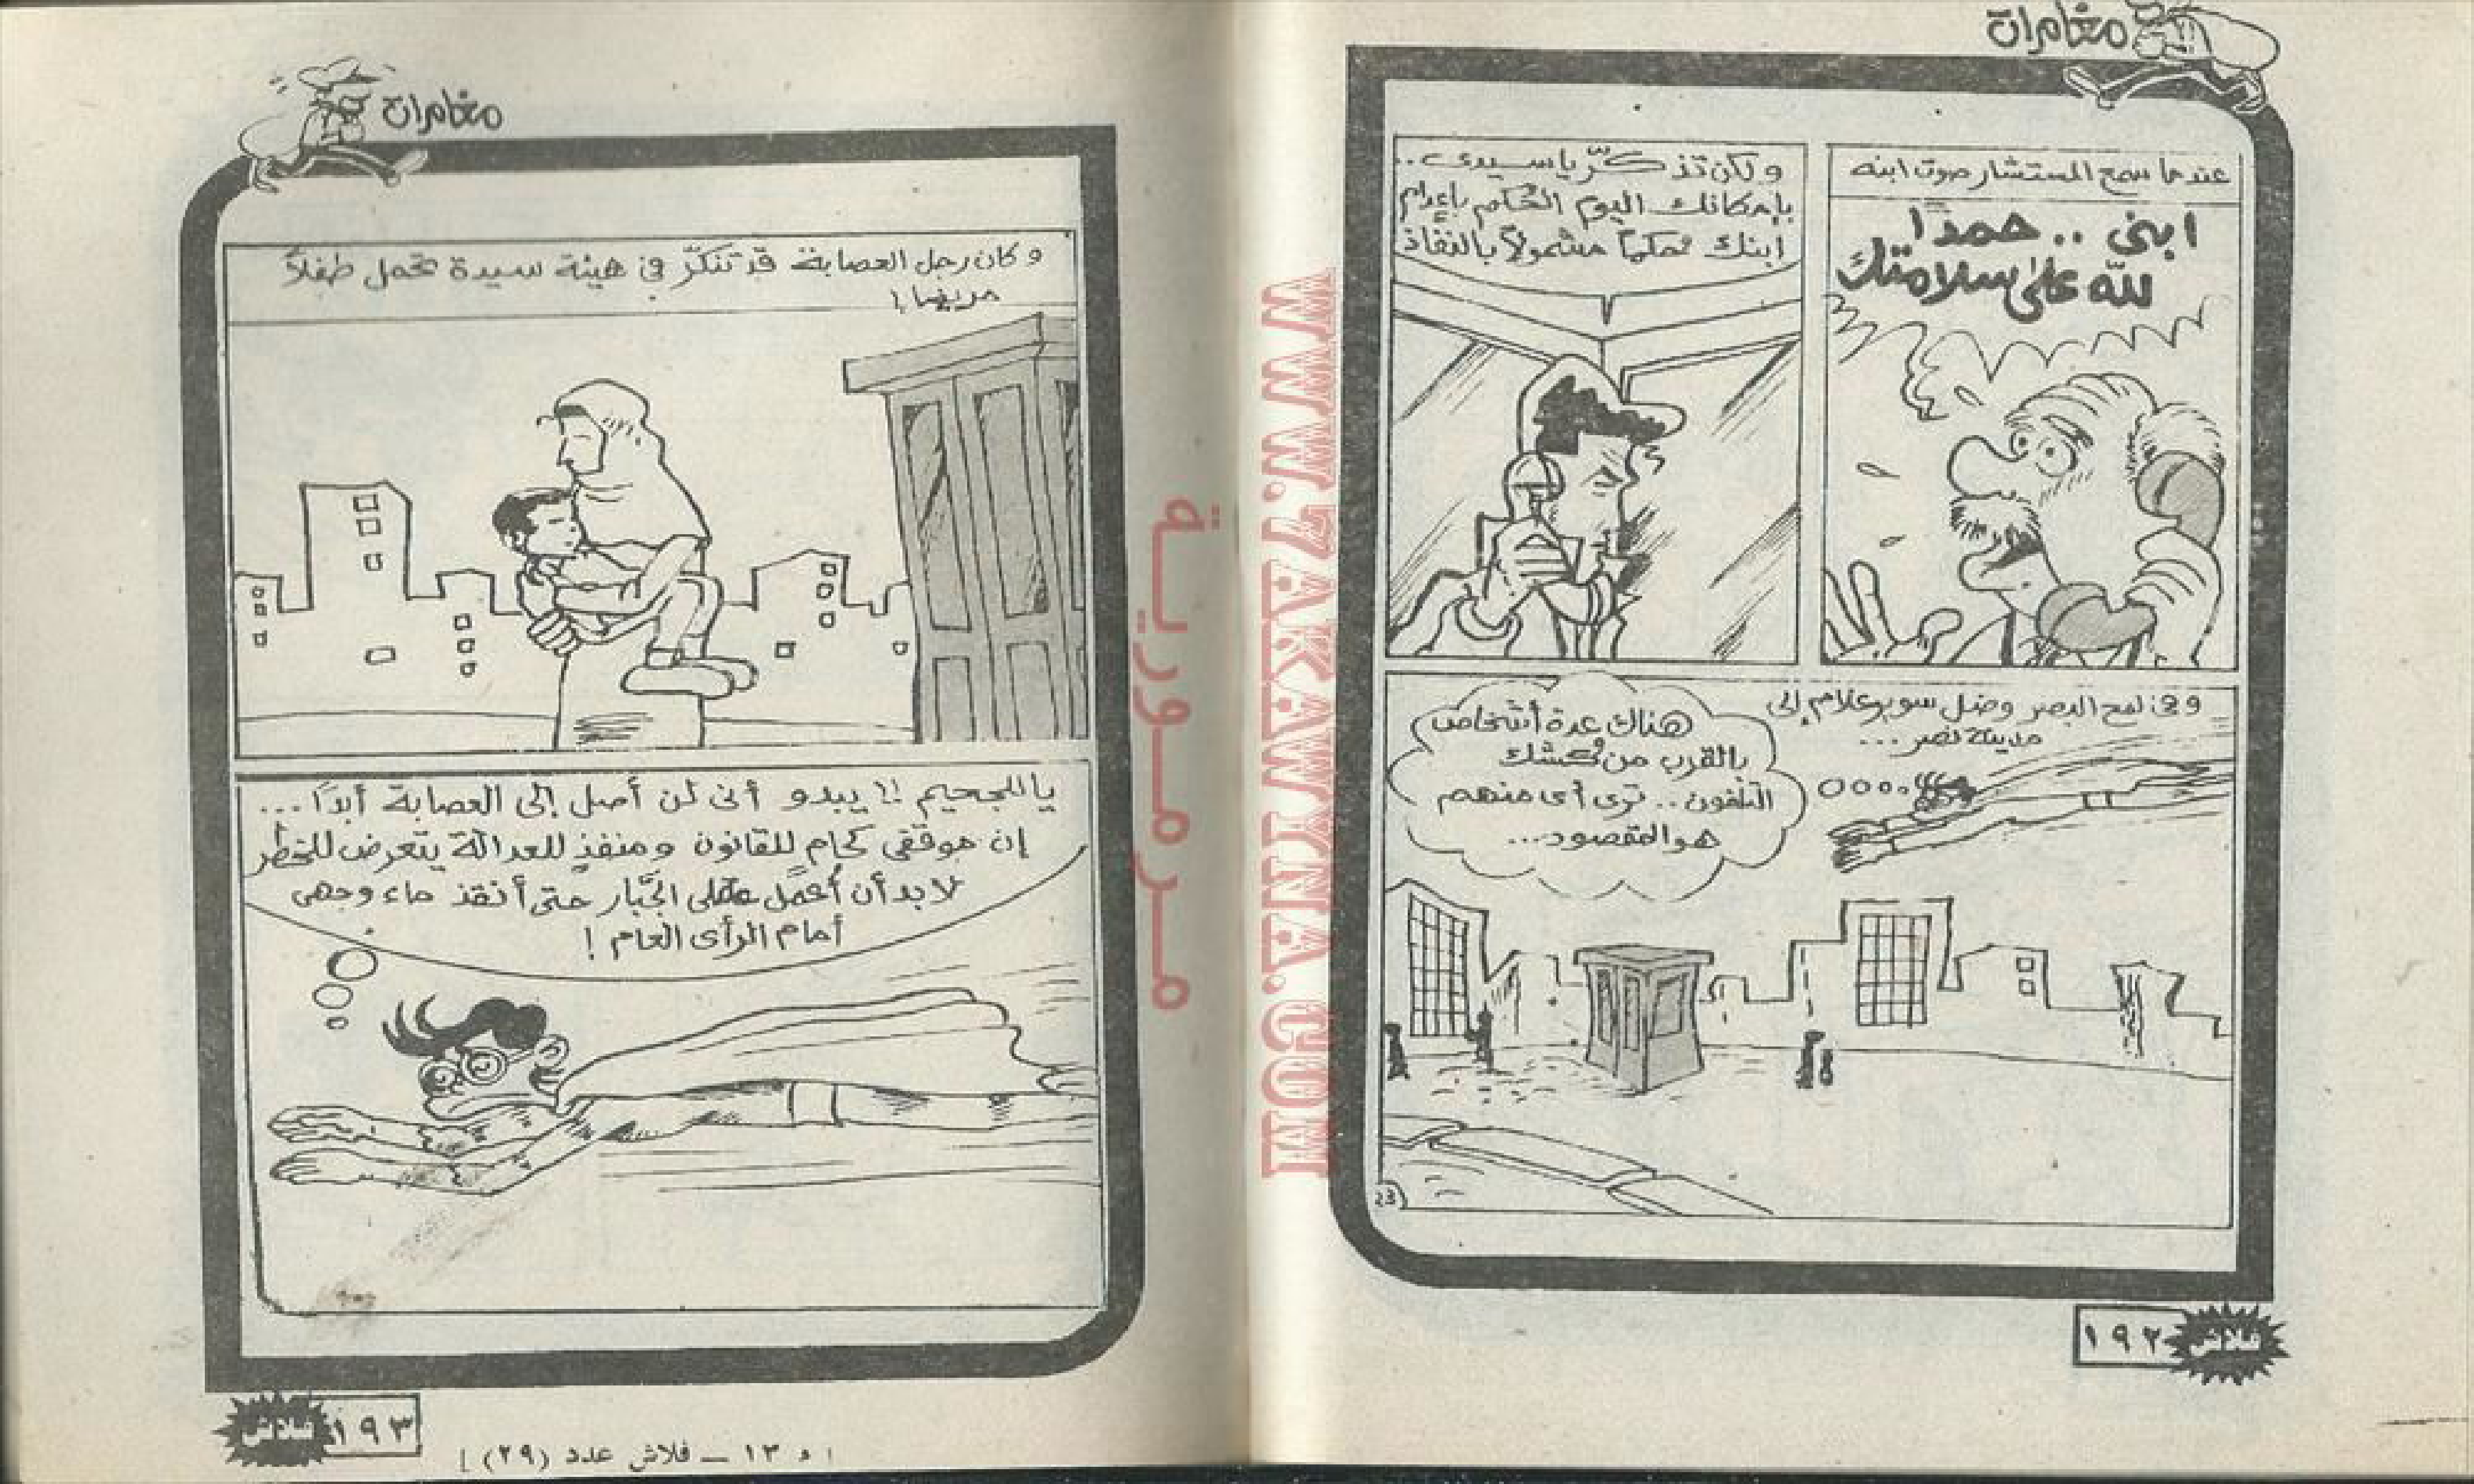 مغامرات
عندما سمع المستشار صوت ابنه
ابنى .. حمداً
لله على سلامتك
ولكن تذكّر يا سيدى ..
بإمكانك اليوم الحكم بإعدام
ابنك حكماً مشمولاً بالنفاذ
وفى لمح البصر وصل سوبر علام إلى
مدينة نصر ...
هناك عدة أشخاص
بالقرب من كشك
التلفون .. ترى أى منهم
هو المقصود ...
23
١٩٢
فلاش
مغامرات
وكان رجل العصابة قد تنكّر فى هيئة سيدة تحمل طفلاً
مريضا !
يا للجحيم !! يبدو أنى لن أصل إلى العصابة أبداً ...
إن موقفى كحامٍ للقانون ومنفذٍ للعدالة يتعرض للخطر
لابد أن أُعمل عقلى الجبّار حتى أنقذ ماء وجهى
أمام الرأى العام !
فلاش
١٩٣
[ م ١٣ – فلاش عدد (٢٩) ]
مرمورية
WWW.7AKAWYINA.COM